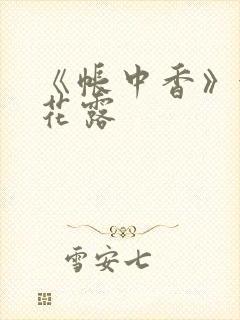 《帐中香》
花露
雪安七